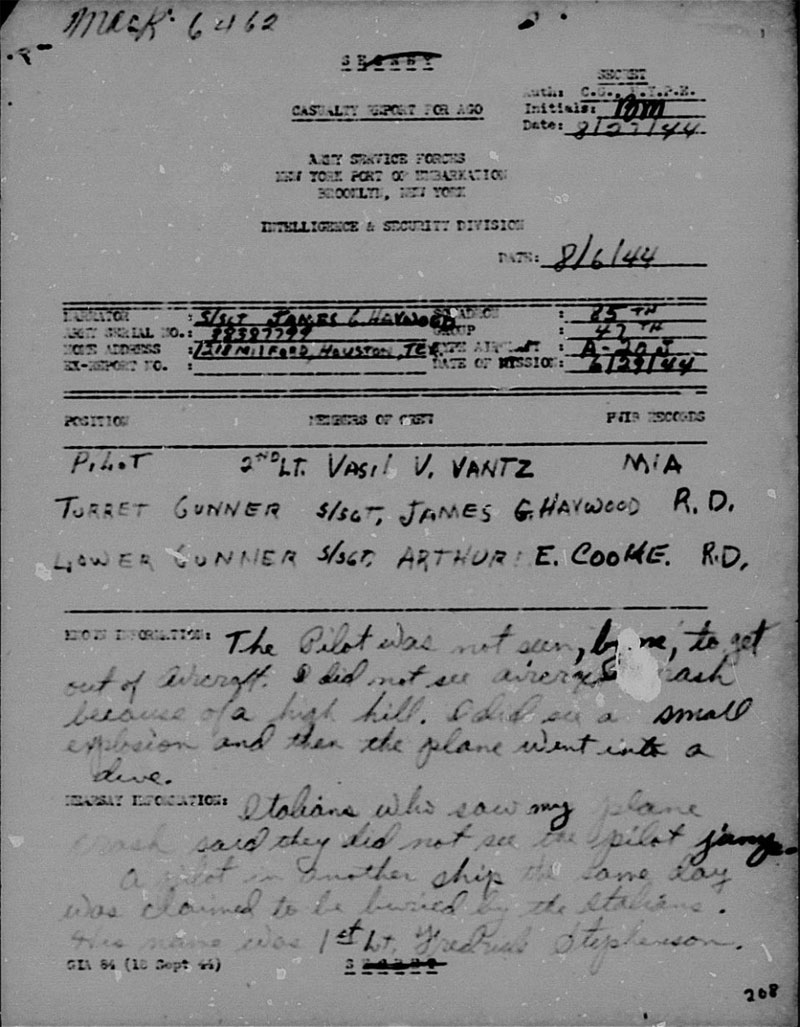 MACR 6462
SECRET
SECRET
Auth: C.G., N.Y.P.E.
CASUALTY REPORT FOR AGO
Initials: BM
Date: 8/27/44
ARMY SERVICE FORCES
NEW YORK PORT OF EMBARKATION
BROOKLYN, NEW YORK
INTELLIGENCE & SECURITY DIVISION
DATE: 8/6/44
NARRATOR : S/SGT JAMES G. HAYWOOD SQUADRON : 85TH
ARMY SERIAL NO.: GROUP : 47TH
HOME ADDRESS : 1218 MILFORD, HOUSTON, TEX. TYPE AIRCRAFT : A-20J
EX-REPORT NO. : DATE OF MISSION: 6/29/44
POSITION MEMBERS OF CREW RECORDS
PILOT 2ND LT. VASIL V. VANTZ MIA
TURRET GUNNER S/SGT, JAMES G. HAYWOOD R.D.
LOWER GUNNER S/SGT, ARTHUR E. COOKE. R.D.
KNOWN INFORMATION: The Pilot was not seen, by me, to get
out of Aircraft. I did not see aircraft crash
because of a high hill. I did see a small
explosion and then the plane went into a
dive.
HEARSAY INFORMATION: Italians who saw my plane
crash said they did not see the pilot jump.
A pilot in another ship the same day
was claimed to be buried by the Italians.
His name was 1st Lt. Stephenson.
GIA 84 (18 Sept 44) SECRET
208